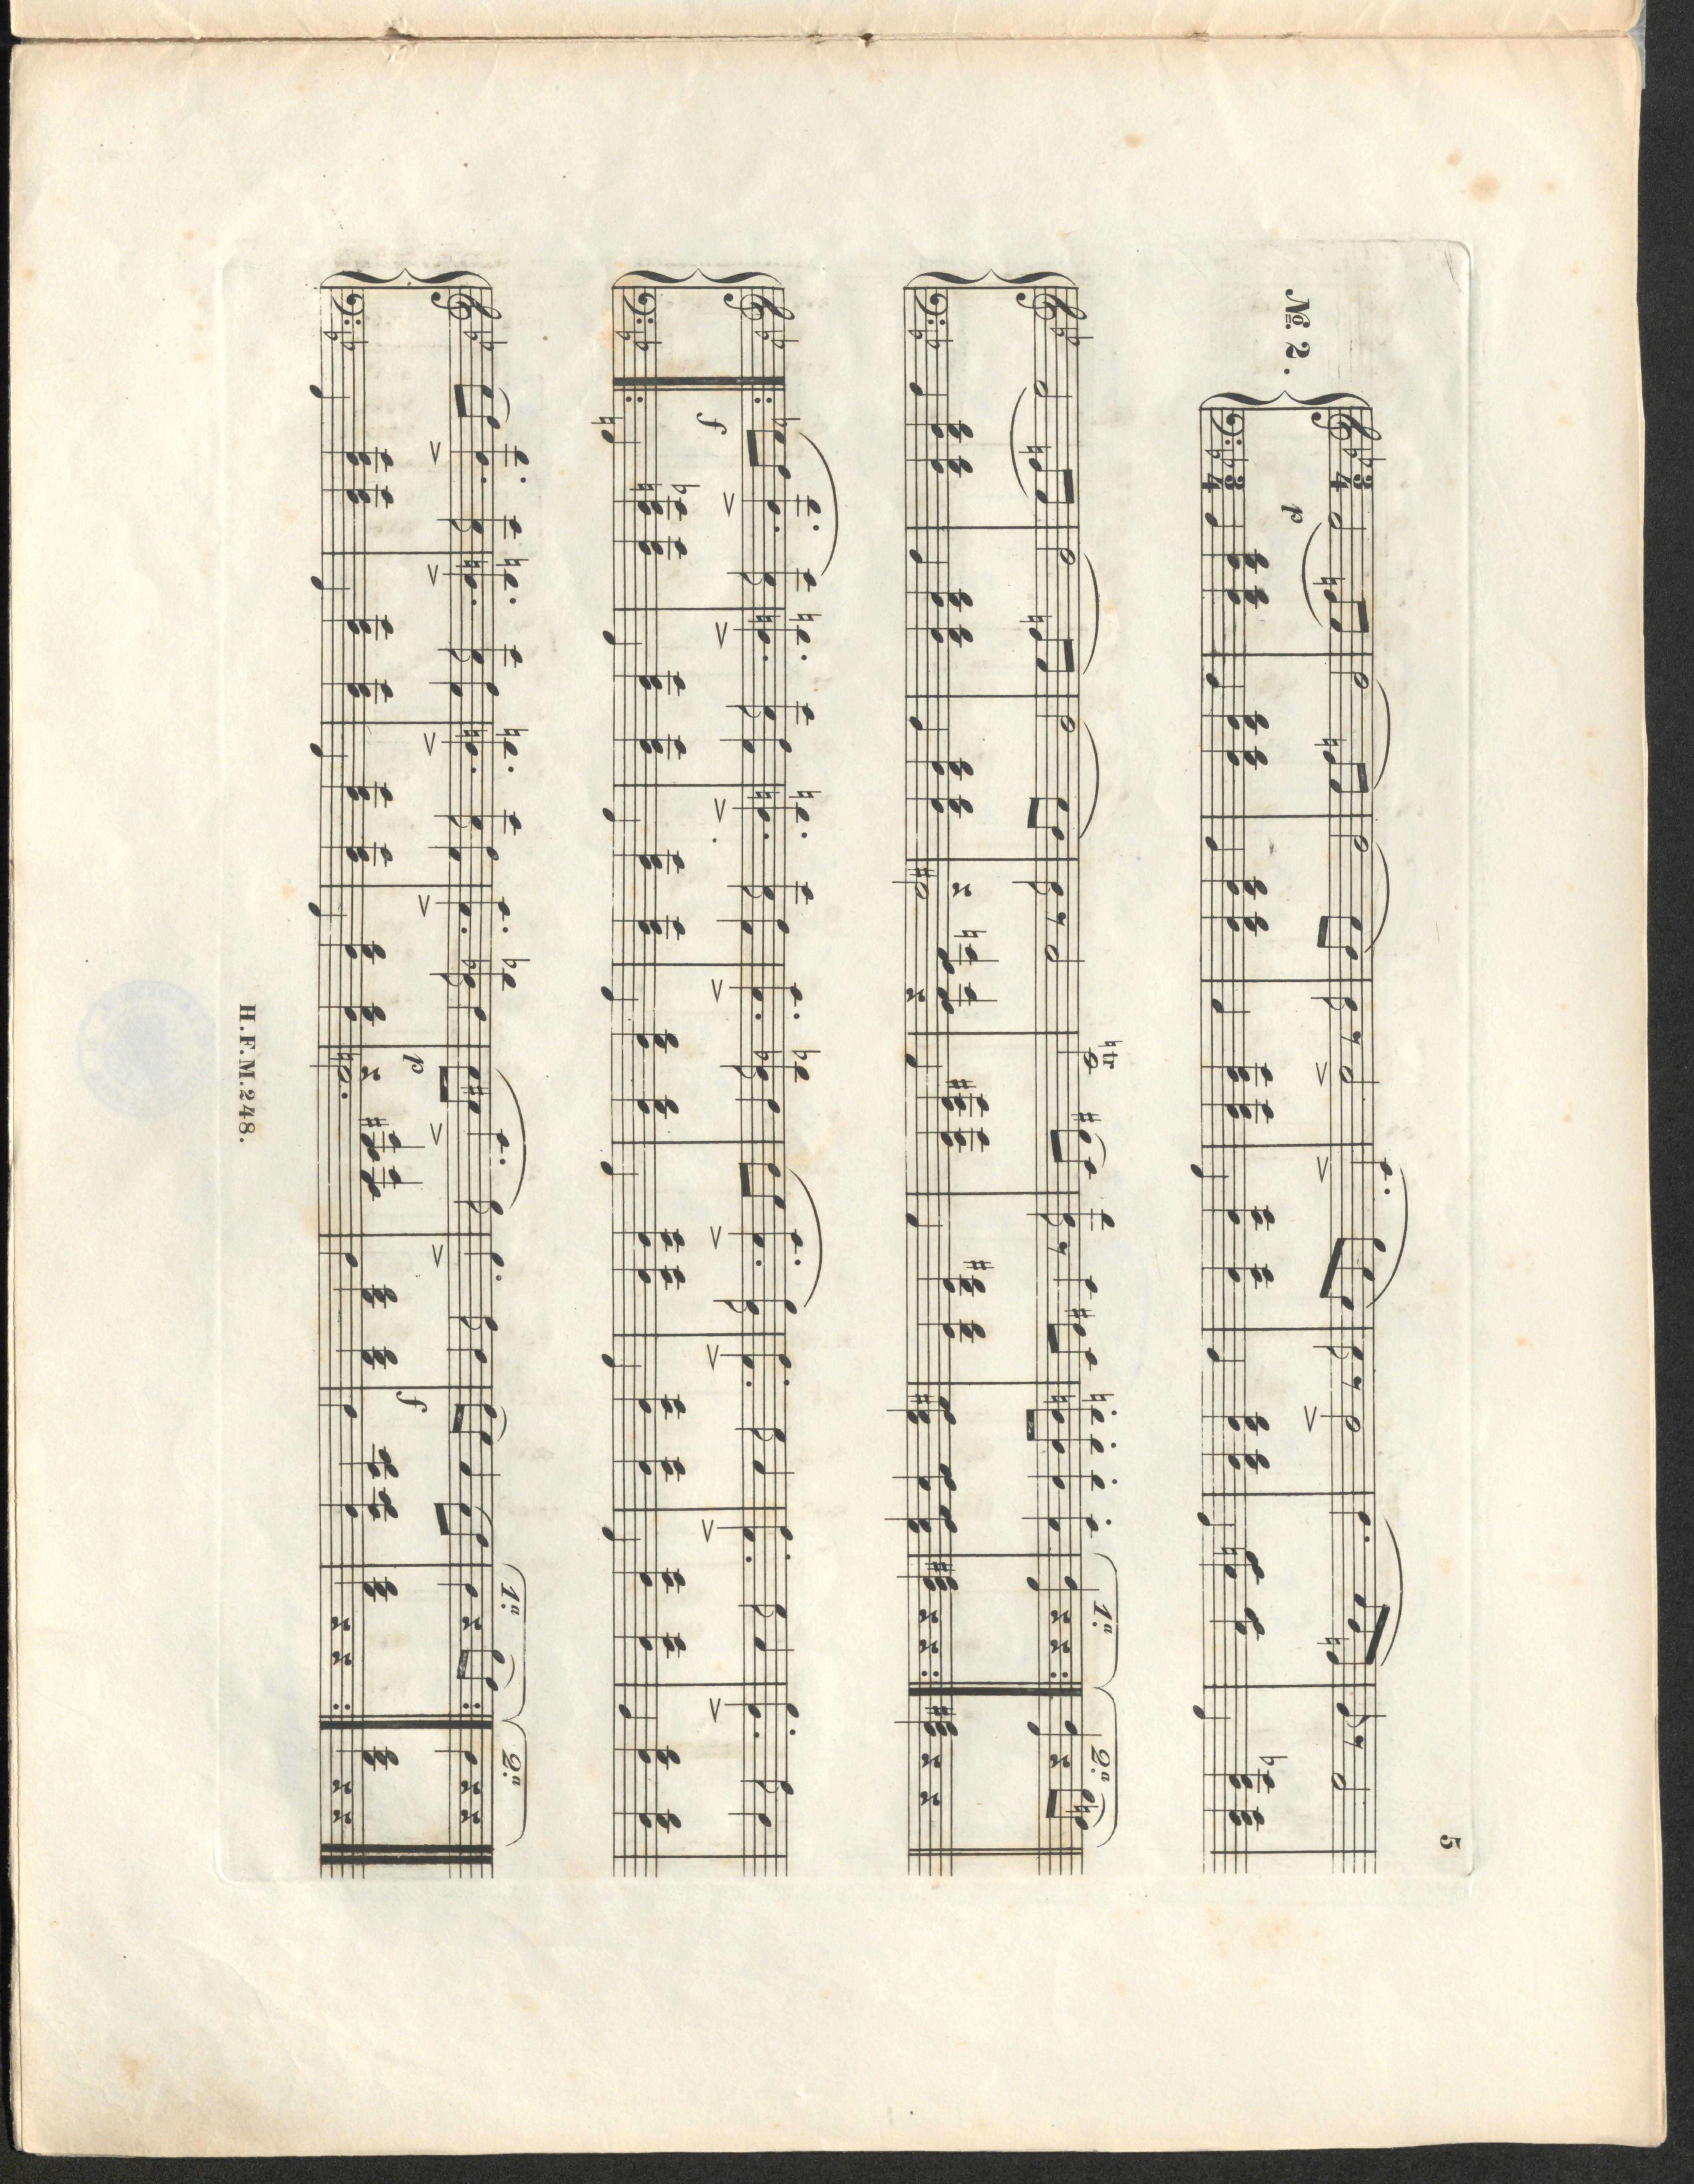 5
№. 2.
3
4
3
4
p
tr
1.a
2.a
f
p
f
1.a
2.a
H.F.M.248.